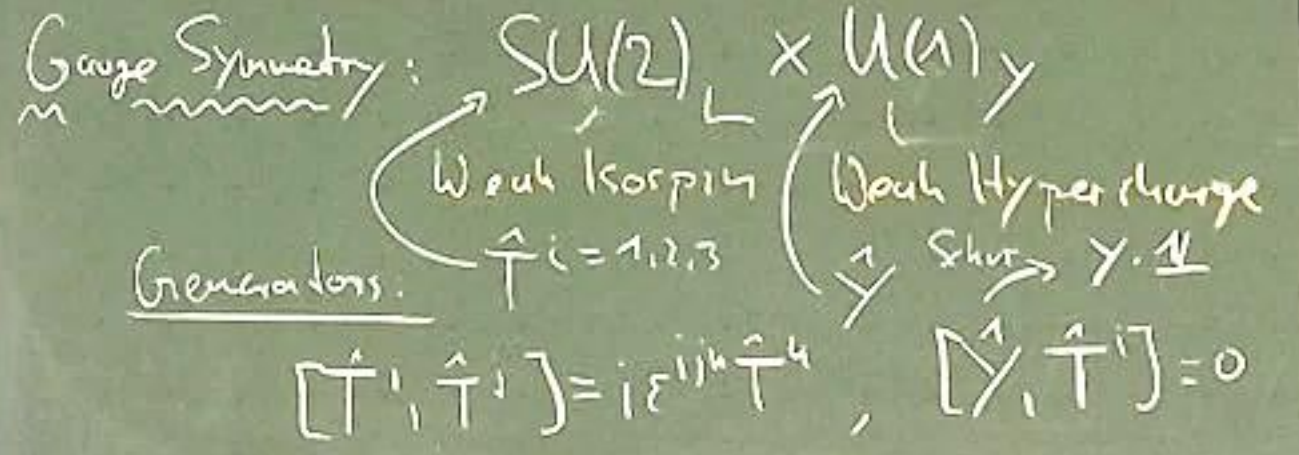 Gauge Symmetry: SU(2)_L × U(1)_Y
Weak Isospin Weak Hypercharge
Generators: T̂^i=1,2,3 Ŷ Schur → y·𝟙
[T̂^i, T̂^j] = iε^{ijk} T̂^k, [Ŷ, T̂^i] = 0